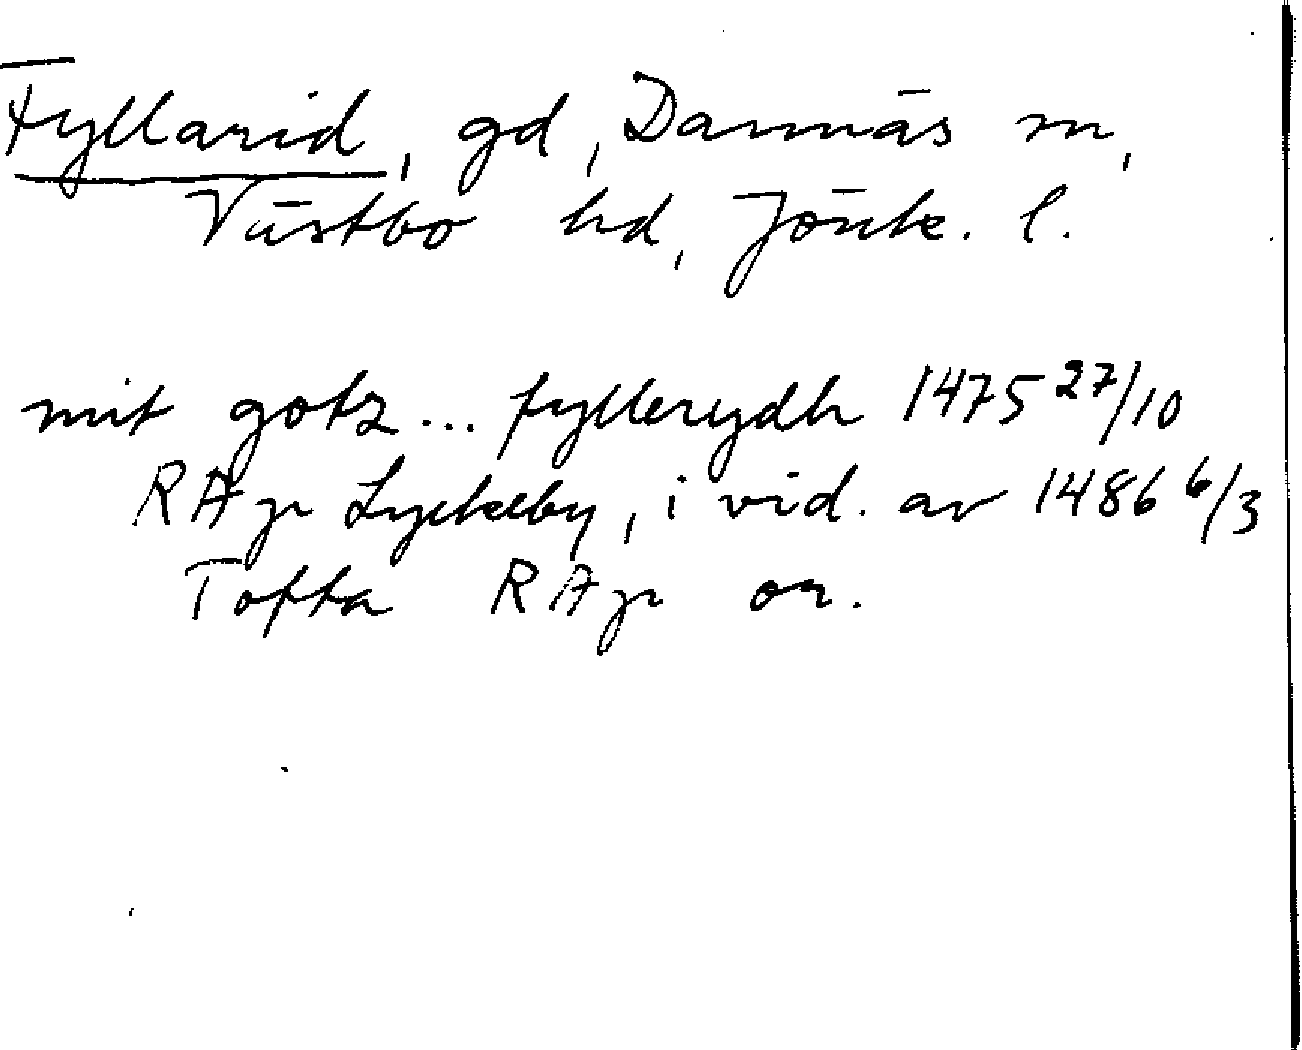 Fyllarid, gd, Dannäs sn,
Västbo hd, Jönk. l.
mit gotz... fyllerydh 1475 27/10
RAp Lyckeby, i vid. av 1486 6/3
Tofta RAp or.